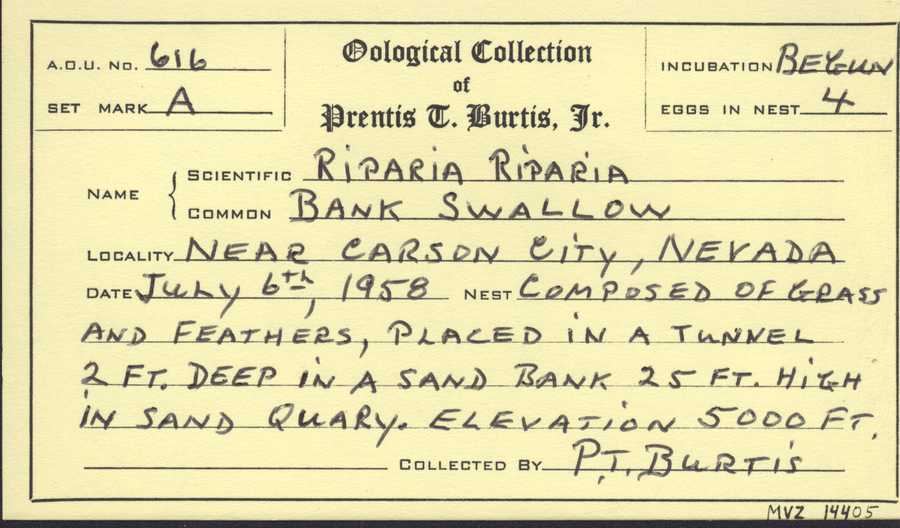 A.O.U. NO. 616
SET MARK A
Oological Collection
of
Prentis T. Burtis, Jr.
INCUBATION BEGUN
EGGS IN NEST 4
NAME
SCIENTIFIC RIPARIA RIPARIA
COMMON BANK SWALLOW
LOCALITY NEAR CARSON CITY, NEVADA
DATE JULY 6th, 1958 NEST COMPOSED OF GRASS
AND FEATHERS, PLACED IN A TUNNEL
2 FT. DEEP IN A SAND BANK 25 FT. HIGH
IN SAND QUARY. ELEVATION 5000 FT.
COLLECTED BY P.T. BURTIS
MVZ 14405